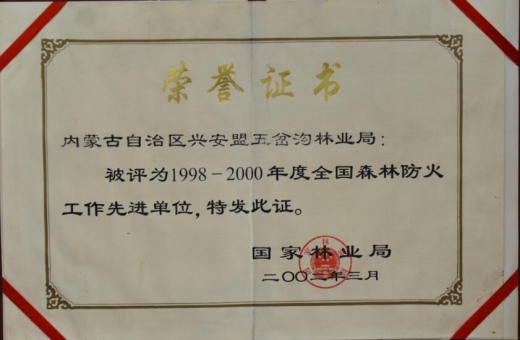 荣誉证书
内蒙古自治区兴安盟五岔沟林业局：
被评为1998－2000年度全国森林防火
工作先进单位，特发此证。
国家林业局
二〇〇二年三月